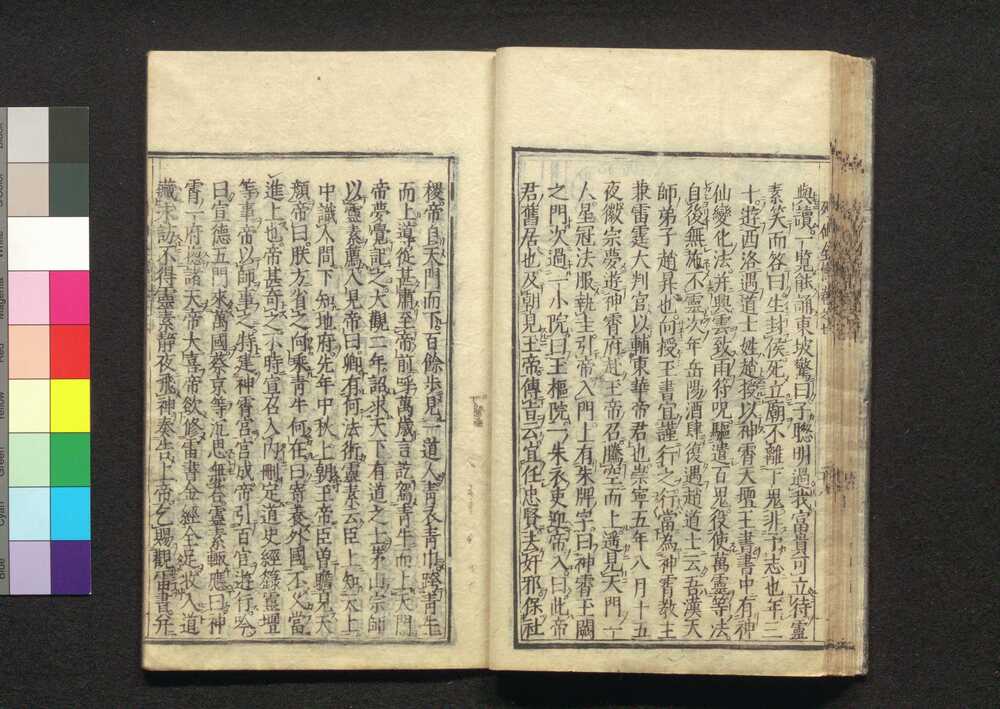 與讀一覧能誦東坡驚曰子聰明過我富貴可立待靈
素笑而答曰生封侯死立廟不離下鬼非予志也年三
十遊西洛遇道士姓趙授以神霄天壇玉書書中有神
仙變化法并興雲致雨符呪驅遣百鬼役使萬靈等法
自後無施不靈次年岳陽酒肆復遇趙道士云吾漢天
師弟子趙昇也向授玉書宜謹行之行當為神霄教主
兼雷霆大判官以輔東華帝君也崇寧五年八月十五
夜徽宗夢遊神霄府赴玉帝召騰空而上遥見天門一
人星冠法服執圭引帝入門上有朱牌字曰神霄玉闕
之門次過一小院曰玉樞院一朱衣吏迎帝入曰此帝
君舊居也及朝見玉帝傳旨云宜任忠賢去奸邪保社
稷帝自天門而下百餘步見一道人青衣青巾跨青牛
而上導從甚肅至帝前呼萬歲言訖駕青牛而上天門
帝夢覺記之大觀二年詔求天下有道之士茅山宗師
以靈素薦入見帝曰卿有何法術靈素云臣上知天上
中識人間下知地府先年中秋上朝玉帝臣曽瞻見天
顏帝曰朕方省之向乘青牛何在曰寄養外國不久當
進上也帝甚奇之不時宣召入内刪定道史經籙靈壇
等事帝以師事之特建神霄宮宮成帝引百官遊行吟
曰宣德五門來萬國蔡京等沉思無答靈素輒應曰神
霄一府總諸天帝大喜帝欲修雷書金經全足收入道
藏朱訪不得靈素靜夜飛神奏告上帝乞賜觀雷書斤